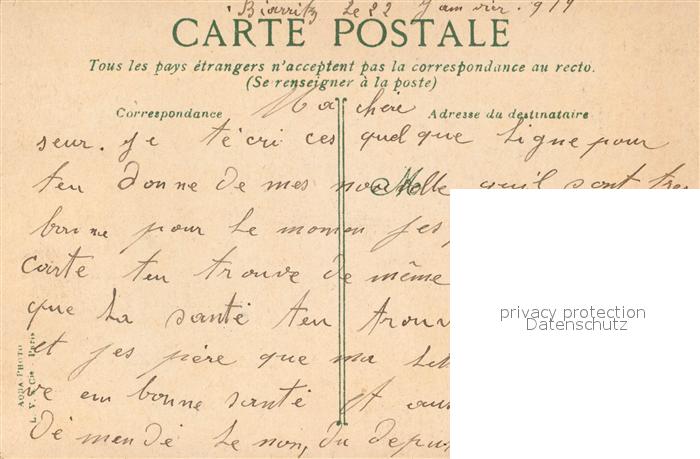 Biarritz Le 22 Janvier. 919
CARTE POSTALE
Tous les pays étrangers n'acceptent pas la correspondance au recto.
(Se renseigner à la poste)
Correspondance
Adresse du destinataire
Ma chère
seur. je té cri ces quelque Ligne pour
ten donne de mes nouvelle quil sont tres
bonne pour Le momen jes
carte ten trouve de même
que La santé ten trouv
et jes père que ma Let
ve em bonne santé et aus
dé mendé Le non, du depu
privacy protection
Datenschutz
AQUA-PHOTO
L. V. & Cie Paris